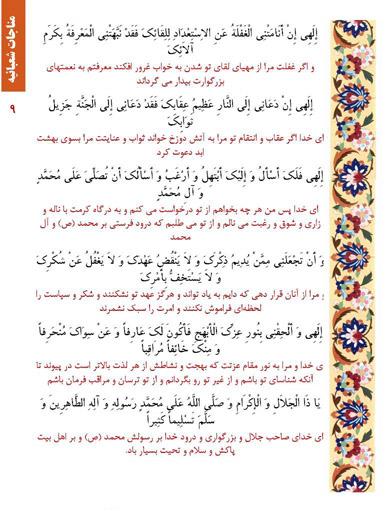 مناجات شعبانیه
۹
إِلَهِی إِنْ أَنَامَتْنِی الْغَفْلَةُ عَنِ الاسْتِعْدَادِ لِلِقَائِکَ فَقَدْ نَبَّهَتْنِی الْمَعْرِفَةُ بِکَرَمِ
آلائِکَ
و اگر غفلت مرا از مهیای لقای تو شدن به خواب غرور افکند معرفتم به نعمتهای
بزرگوارت بیدار می گرداند
إِلَهِی إِنْ دَعَانِی إِلَی النَّارِ عَظِیمُ عِقَابِکَ فَقَدْ دَعَانِی إِلَی الْجَنَّةِ جَزِیلُ
ثَوَابِکَ
ای خدا اگر عقاب و انتقام تو مرا به آتش دوزخ خواند ثواب و عنایتت مرا بسوی بهشت
ابد دعوت کرد
إِلَهِی فَلَکَ أَسْأَلُ وَ إِلَیْکَ أَبْتَهِلُ وَ أَرْغَبُ وَ أَسْأَلُکَ أَنْ تُصَلِّیَ عَلَی مُحَمَّدٍ
وَ آلِ مُحَمَّدٍ
ای خدا پس من هر چه بخواهم از تو درخواست می کنم و به درگاه کرمت با ناله و
زاری و شوق و رغبت می نالم و از تو می طلبم که درود فرستی بر محمد (ص) و آل
محمد
وَ أَنْ تَجْعَلَنِی مِمَّنْ یُدِیمُ ذِکْرَکَ وَ لا یَنْقُضُ عَهْدَکَ وَ لا یَغْفُلُ عَنْ شُکْرِکَ
وَ لا یَسْتَخِفُّ بِأَمْرِکَ
و مرا از آنان قرار دهی که دایم به یاد تواند و هرگز عهد تو نشکنند و شکر و سپاست را
لحظه‌ای فراموش نکنند و امرت را سبک نشمرند
إِلَهِی وَ أَلْحِقْنِی بِنُورِ عِزِّکَ الْأَبْهَجِ فَأَکُونَ لَکَ عَارِفاً وَ عَنْ سِوَاکَ مُنْحَرِفاً
وَ مِنْکَ خَائِفاً مُرَاقِباً
ای خدا و مرا به نور مقام عزتت که بهجت و نشاطش از هر لذت بالاتر است در پیوند تا
آنکه شناسای تو باشم و از غیر تو رو بگردانم و از تو ترسان و مراقب فرمان باشم
یَا ذَا الْجَلالِ وَ الْإِکْرَامِ وَ صَلَّی اللَّهُ عَلَی مُحَمَّدٍ رَسُولِهِ وَ آلِهِ الطَّاهِرِینَ وَ
سَلَّمَ تَسْلِیماً کَثِیراً
ای خدای صاحب جلال و بزرگواری و درود خدا بر رسولش محمد (ص) و بر اهل بیت
پاکش و سلام و تحیت بسیار باد.